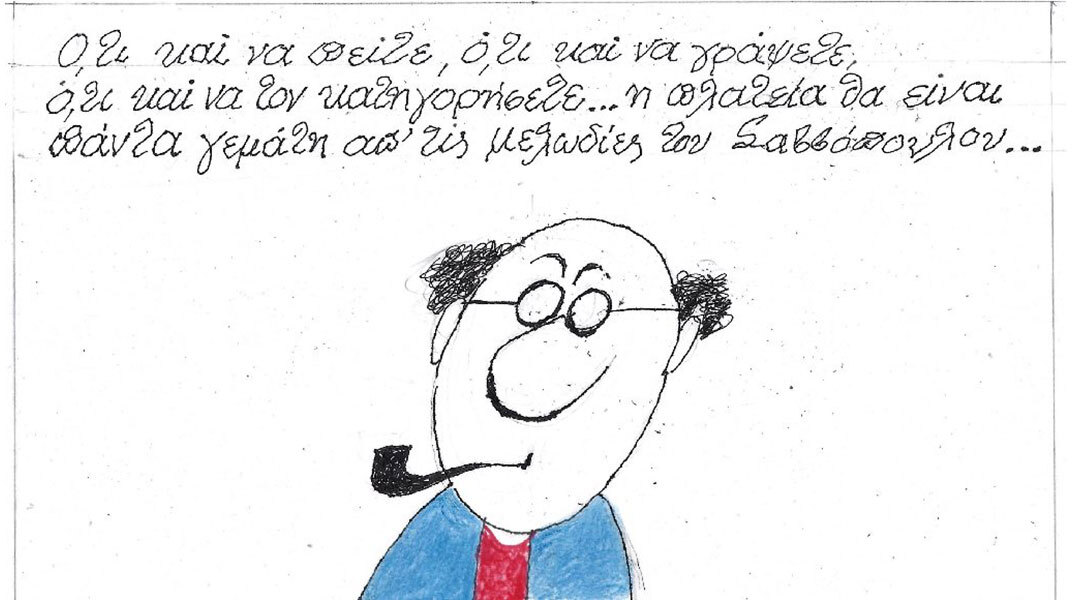 Ό,τι και να πείτε, ό,τι και να γράψετε,
ό,τι και να τον κατηγορήσετε... η πλατεία θα είναι
πάντα γεμάτη απ' τις μελωδίες του Σαββόπουλου...